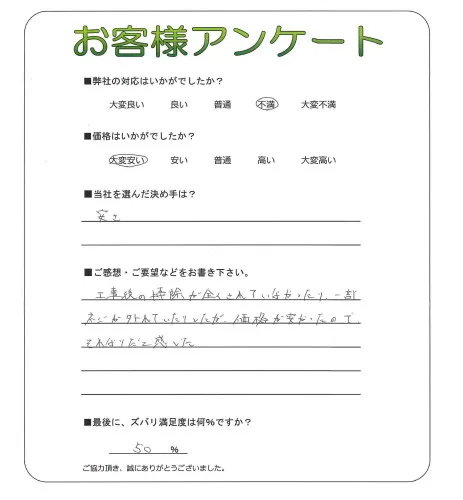 お客様アンケート
■弊社の対応はいかがでしたか?
大変良い 良い 普通 不満 大変不満
■価格はいかがでしたか?
大変安い 安い 普通 高い 大変高い
■当社を選んだ決め手は?
安さ
■ご感想・ご要望などをお書き下さい。
工事後の掃除が全くされていなかったり、一部
ネジが外れていたりしたが、価格が安かったので
それなりだと感じた
■最後に、ズバリ満足度は何%ですか?
50 %
ご協力頂き、誠にありがとうございました。